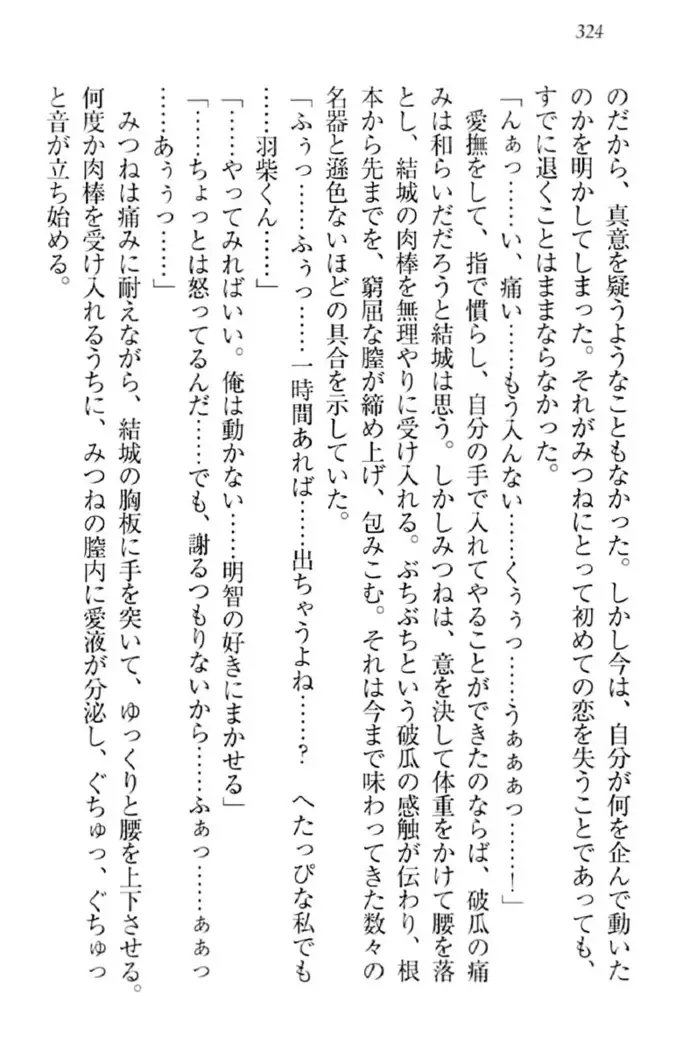 324
のだから、真意を疑うようなこともなかった。しかし今は、自分が何を企んで動いた
のかを明かしてしまった。それがみつねにとって初めての恋を失うことであっても、
すでに退くことはままならなかった。
「んぁっ……い、痛い……もう入んない……くぅぅっ……うぁぁぁっ……！」
愛撫をして、指で慣らし、自分の手で入れてやることができたのならば、破瓜の痛
みは和らいだだろうと結城は思う。しかしみつねは、意を決して体重をかけて腰を落
とし、結城の肉棒を無理やりに受け入れる。ぶちぶちという破瓜の感触が伝わり、根
本から先までを、窮屈な膣が締め上げ、包みこむ。それは今まで味わってきた数々の
名器と遜色ないほどの具合を示していた。
「ふぅっ……ふぅっ……一時間あれば……出ちゃうよね……？　へたっぴな私でも
……羽柴くん……」
「……やってみればいい。俺は動かない……明智の好きにまかせる」
「……ちょっとは怒ってるんだ……でも、謝るつもりないから……ふぁっ……ぁぁっ
……あぅぅっ……」
みつねは痛みに耐えながら、結城の胸板に手を突いて、ゆっくりと腰を上下させる。
何度か肉棒を受け入れるうちに、みつねの膣内に愛液が分泌し、ぐちゅっ、ぐちゅっ
と音が立ち始める。